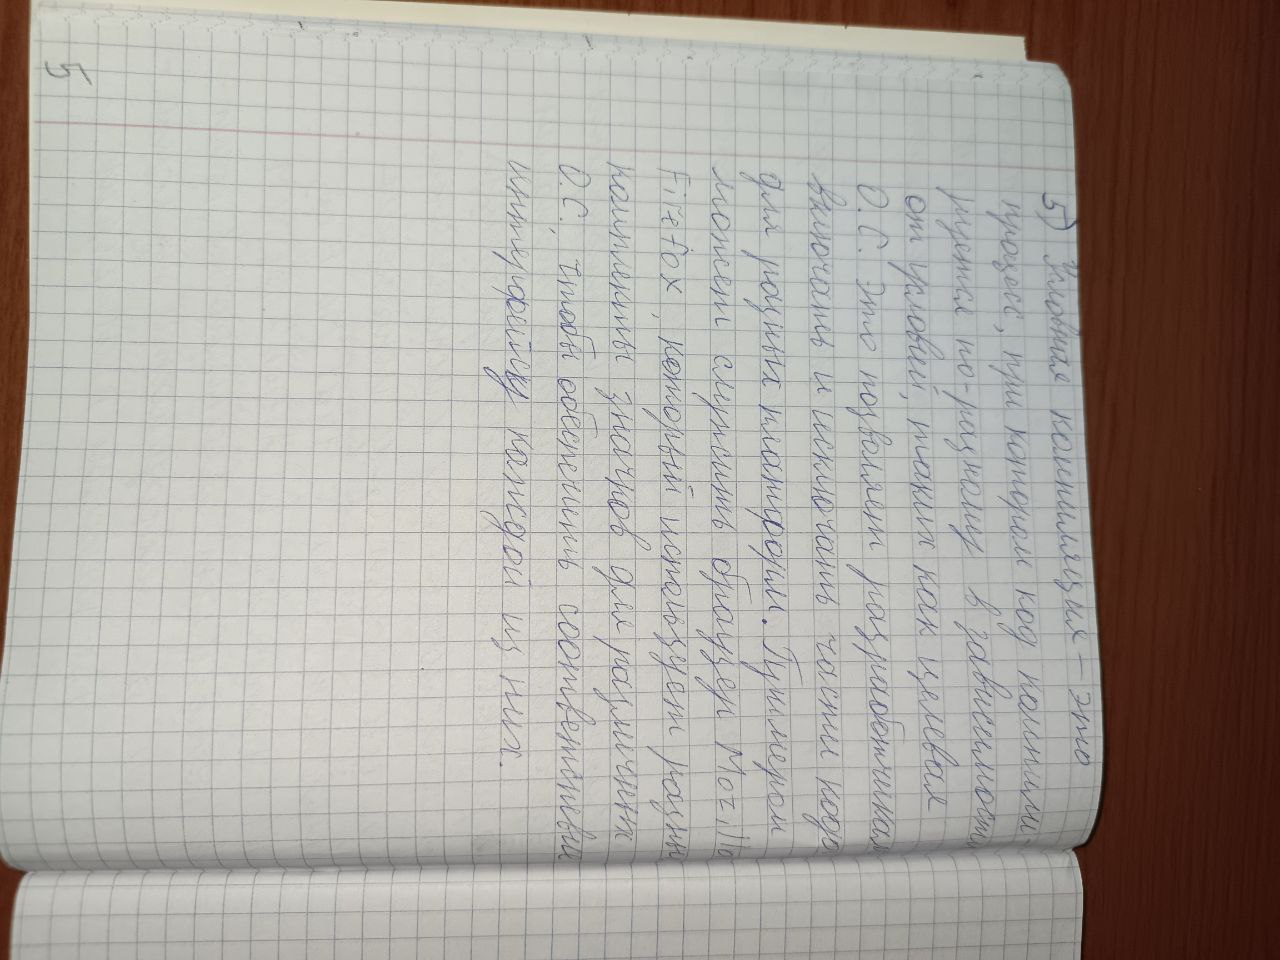 5) Условная компиляция – это
процесс, при котором код компили-
руется по-разному в зависимости
от условий, таких как целевая
О.С. Это позволяет разработчикам
включать и исключать части кода
для разных платформ. Примером
может служить браузер Mozilla
Firefox, который использует разные
комплекты значков для различных
О.С, чтобы обеспечить соответствие
интерфейсу каждой из них.
5